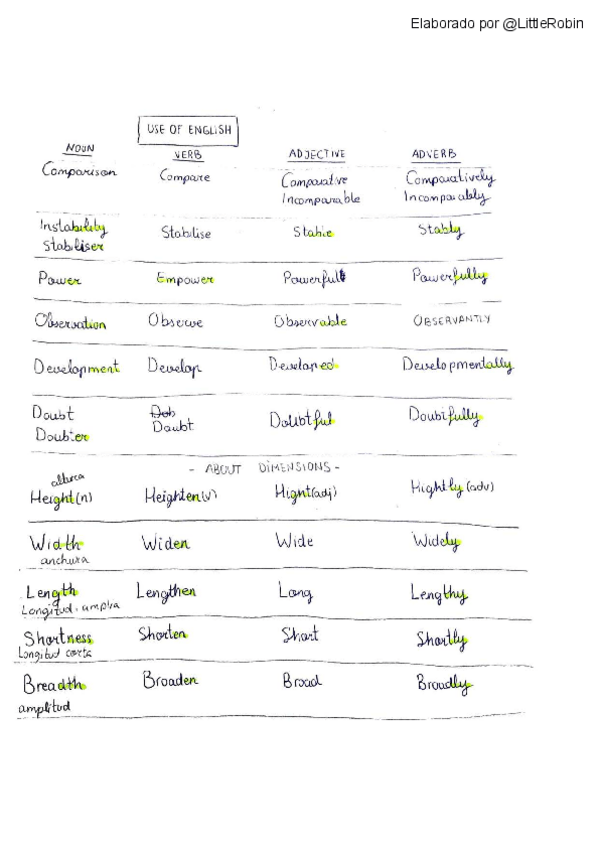 Elaborado por @LittleRobin
USE OF ENGLISH
NOUN VERB ADJECTIVE ADVERB
Comparison Compare Comparative Comparatively
Incomparable Incomparably
Instability Stabilise Stable Stably
Stabiliser
Power Empower Powerful Powerfully
Observation Observe Observable OBSERVANTLY
Development Develop Developed Developmentally
Doubt Dob Doubtful Doubtfully
Doubter Doubt
- ABOUT DIMENSIONS -
altura
Height (n) Heighten (v) Hight (adj) Hightly (adv)
Width Widen Wide Widely
anchura
Length Lengthen Long Lengthy
Longitud - amplia
Shortness Shorten Short Shortly
Longitud corta
Breadth Broaden Broad Broadly
amplitud